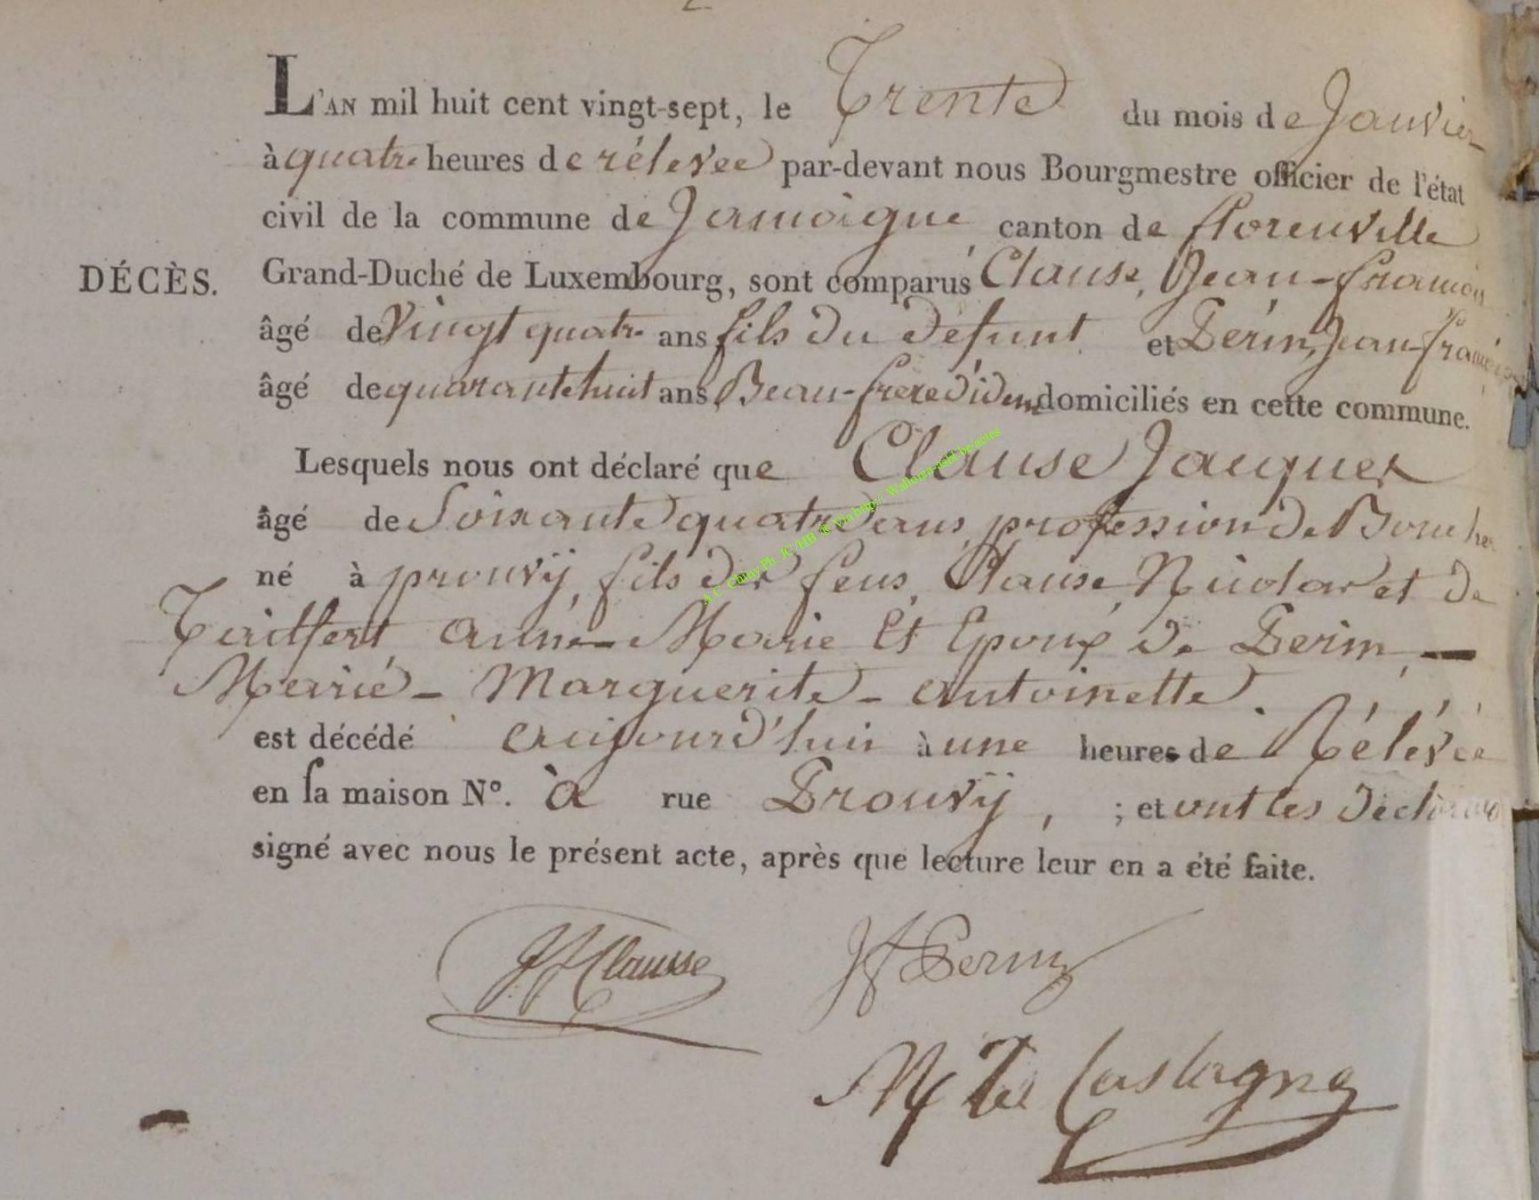 L'AN mil huit cent vingt-sept, le Trente du mois de Janvier
à quatre heures de rélevée par-devant nous Bourgmestre officier de l'état
civil de la commune de Jamoigne, canton de florenville
DÉCÈS. Grand-Duché de Luxembourg, sont comparus Clause, Jean-françois
âgé de Vingt quatre ans fils du défunt et Perin, Jean-françois
âgé de quarante huit ans, Beau-frere d'idem domiciliés en cette commune.
Lesquels nous ont déclaré que Clause Jacques
âgé de Soixante quatre ans, profession de Boucher
né à prouvÿ, fils des feus, Clause, Nicolas et de
anne-Marie Et Epoux de Perin, —
Marie-Marguerite-antoinette.
est décédé aujourd'huii à une heures de Rélevée
en sa maison N°. à rue Prouvÿ, ; et ont les déclarans
signé avec nous le présent acte, après que lecture leur en a été faite.
JfClausse JfPerin
de Castagne